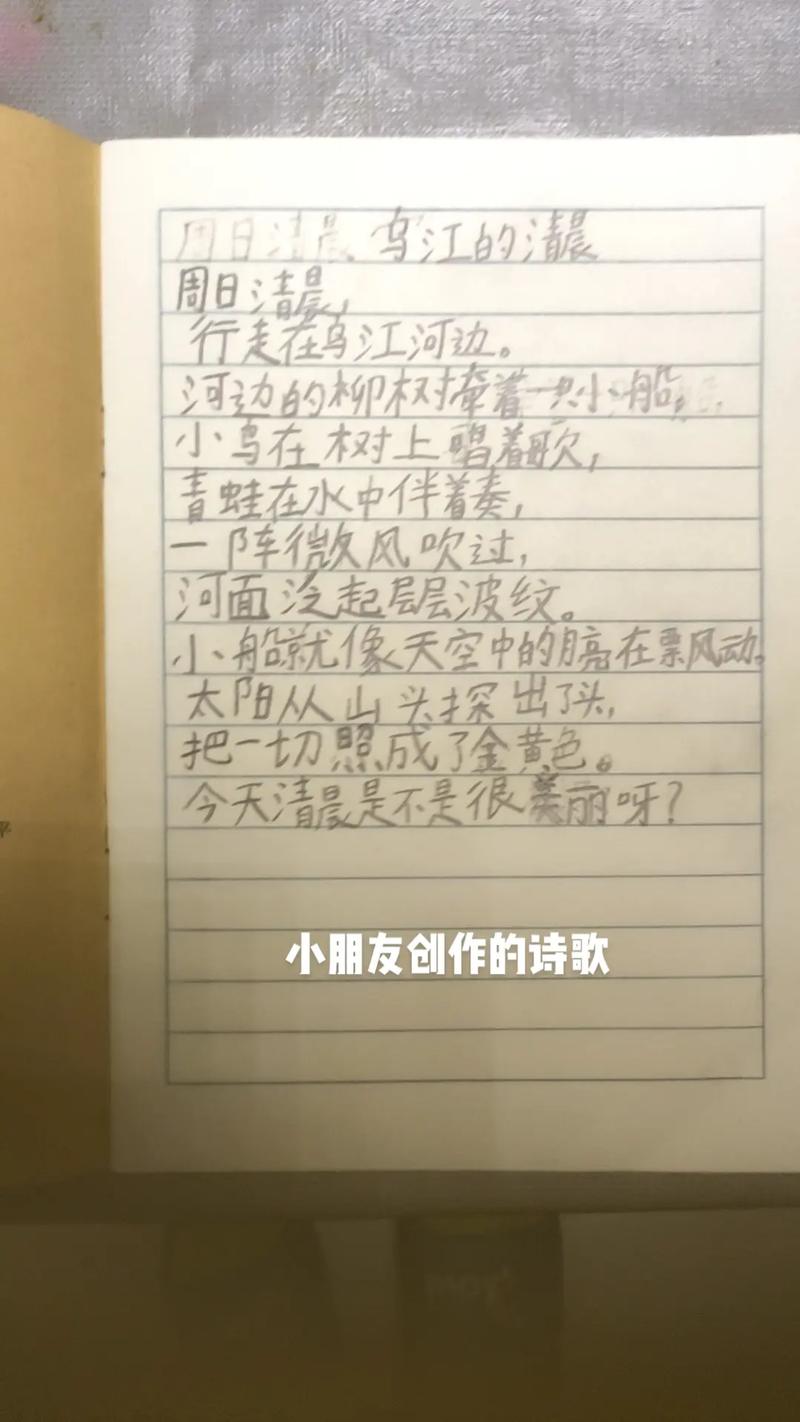 周日清晨 乌江的清晨
周日清晨，
行走在乌江河边。
河边的柳树牵着一只小船，
小鸟在树上唱着歌，
青蛙在水中伴着奏，
一阵微风吹过，
河面泛起层层波纹。
小船就像天空中的月亮在票风动。
太阳从山头探出了头，
把一切照成了金黄色。
今天清晨是不是很美丽呀？
小朋友创作的诗歌